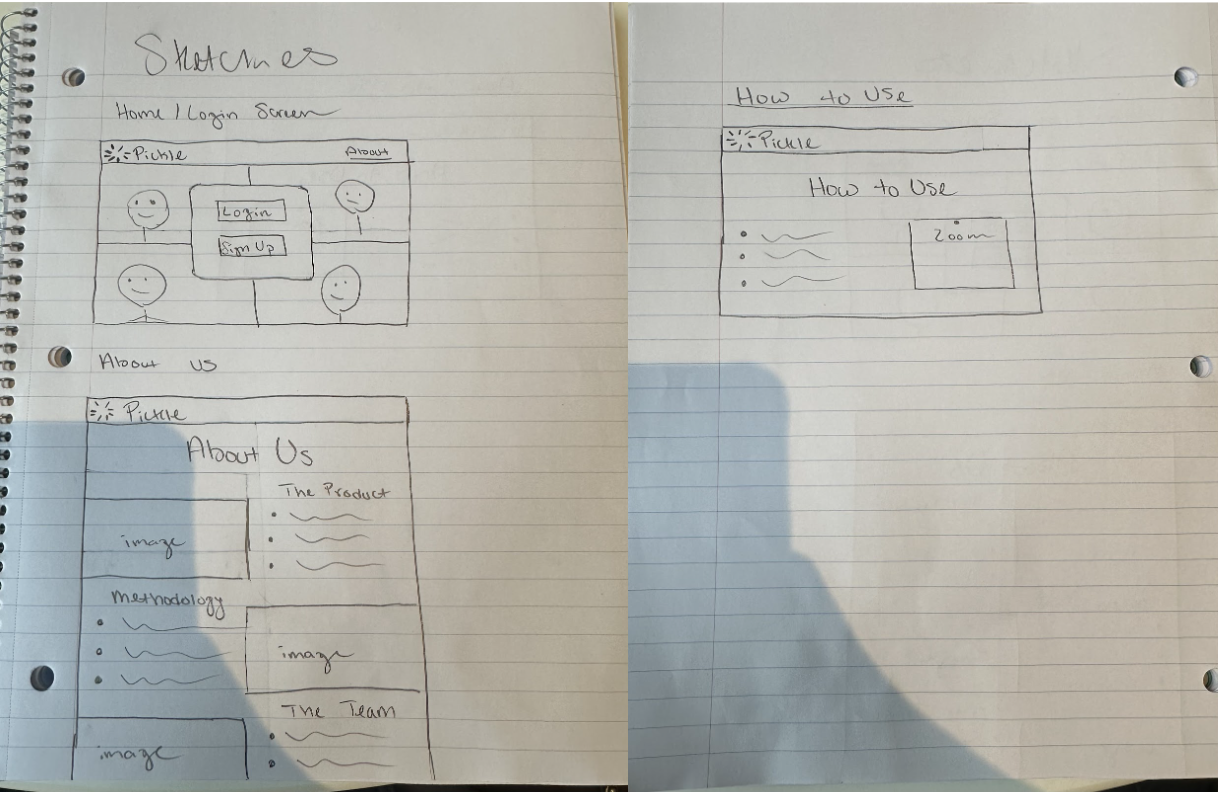 Sketches
Home / Login Screen
Pickle About
Login
Sign Up
About us
Pickle
About Us
The Product
image
Methodology
image
The Team
image
How to Use
Pickle
How to Use
Zoom